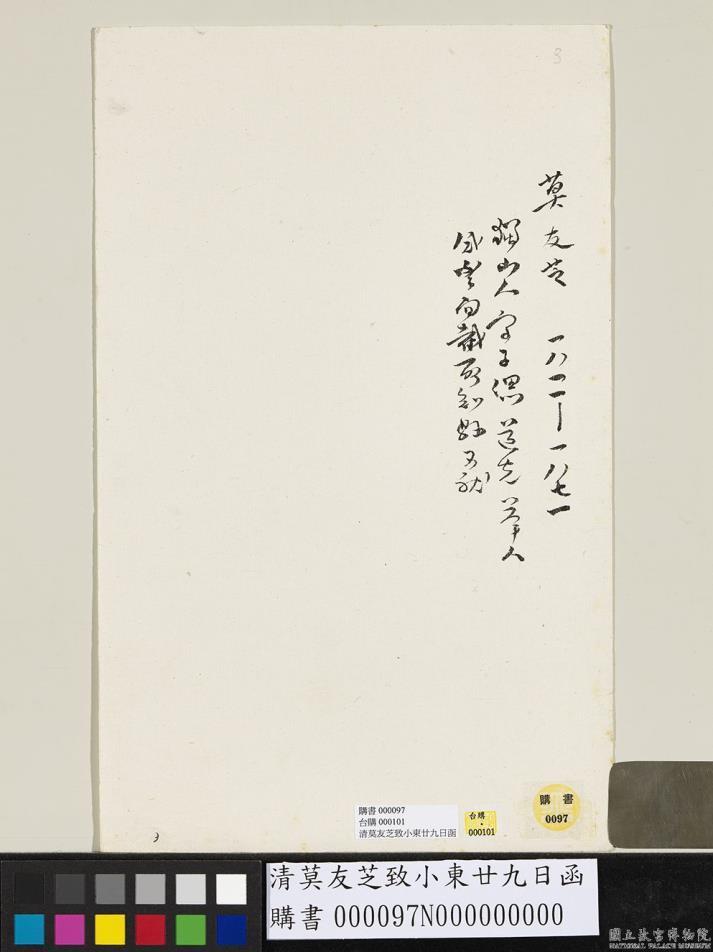 3
莫友芝 一八一一—一八七一
獨山人字子偲道光舉人
咸豐間截取知縣不就
3
購書 000097
台購 000101
清莫友芝致小東廿九日函
台購
・
000101
購書
0097
清莫友芝致小東廿九日函
購書 000097N000000000
國立故宮博物院
NATIONAL PALACE MUSEUM